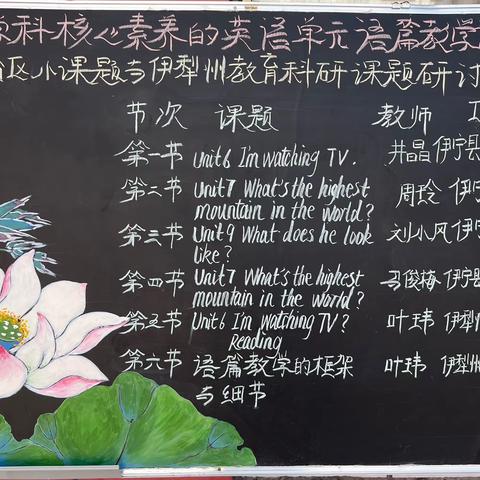 学科核心素养的英语单元语篇教学
区小课题与伊犁州教育科研课题研讨
节次 课题 教师
第一节 Unit6 I'm watching TV. 井晶 伊宁县
第二节 Unit7 What's the highest mountain in the world? 周玲 伊宁
第三节 Unit9 What does he look like? 刘小风 伊宁
第四节 Unit7 What's the highest mountain in the world? 马俊梅 伊宁县
第五节 Unit6 I'm watching TV? Reading 叶玮 伊犁州
第六节 语篇教学的框架与细节 叶玮 伊犁州